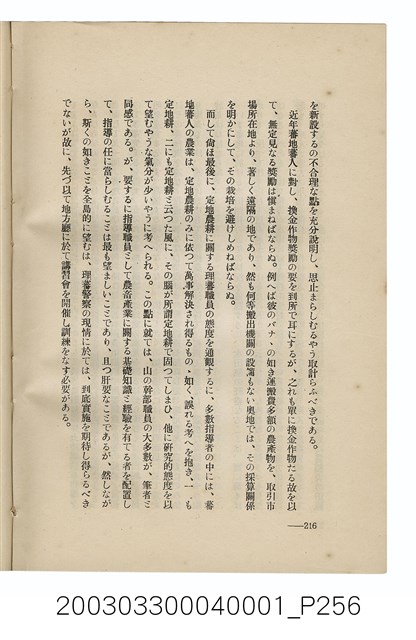 を新設するの不合理な點を充分說明し、思止まらしむるやう取計らふべきである。
近年蕃地蕃人に對し、換金作物獎勵の要を到所で耳にするが、之れも單に換金作物たる故を以
て、無定見なる獎勵は愼まねばならぬ。例へば彼のバナヽの如き運搬費多額の農產物を、取引市
場所在地より、著しく遠隔の地であり、然も何等搬出機關の設備もない奧地では、その採算關係
を明かにして、その栽培を避けしめねばならぬ。
而して尙ほ最後に、定地農耕に關する理蕃職員の態度を通觀するに、多數指導者の中には、蕃
地蕃人の農業は、定地農耕のみに依つて萬事解決され得るものゝ如く誤れる考へを抱き、一も
定地耕、二にも定地耕と云つた風に、その腦が所謂定地耕で固つてしまひ、他に硏究的態度を以
て望むやうな氣分が少いやうに考へられる。この點に就ては、山の幹部職員の大多數が、筆者と
同感である。が、要するに指導職員として農畜產業に關する基礎知識と經驗を有てる者を配置し
て、指導の任に當らしむることは最も望ましいことであり、且つ肝要なことであるが、然しなが
ら、斯くの如きことを全島的に望むは、理蕃警察の現情に於ては、到底實施を期待し得らるべき
でないが故に、先づ以て地方廳に於て講習會を開催し訓練をなす必要がある。
——216
200303300040001_P256